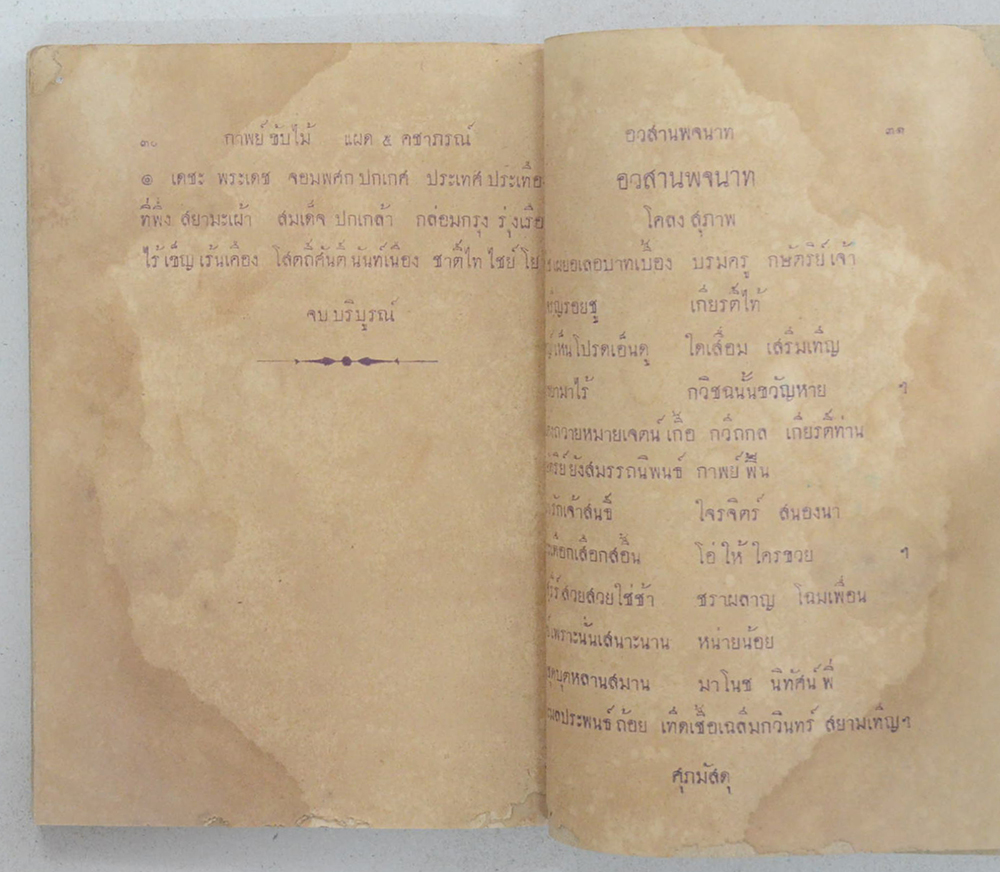 ๓๐ กาพย์ ขับไม้ แผด ๕ คชาภรณ์
๑ เดชะ พระเดช จอมพศก ปกเกศ ประเทศ ประเทือ
ที่พึ่ง สยามะเผ้า สมเด็จ ปกเกล้า กล่อมกรุง รุ่งเรือ
ไร้ เข็ญ เร้นเคือง โสตถิ์ศันติ์ นันท์เนือง ชาติ์ไท ไชย์ โย
จบ บริบูรณ์
อวสานพจนาท ๓๑
อวสานพจนาท
โคลง สุภาพ
บาทเบื้อง บรมครู กษัตริย์ เจ้า
รอยชู เกียรติ์ไท้
เห็นโปรดเอ็นดู ใดเสื่อม เสริมเทิญ
มาไร้ กวิชฉนั้นขวัญหาย ฯ
ถวายหมายเจตน์ เกื้อ กวีถกล เกียรติ์ท่าน
ยังสมรรถนิพนธ์ กาพย์ ฟื้น
รักเจ้าสนธิ์ ใจรจิตร์ สนองนา
เลือกสอื้น โอ่ ให้ ใครชวย ฯ
สวยสวยใช่ช้า ชราผลาญ โฉมเพื่อน
เพราะนั่นเสนาะนาน หน่ายน้อย
บุตหลานสมาน มาโนช นิทัศน์ พี่
ประพนธ์ ถ้อย เทิดเชื้อเฉลิมกวินทร์ สยามเทิญฯ
ศุภมัสดุ